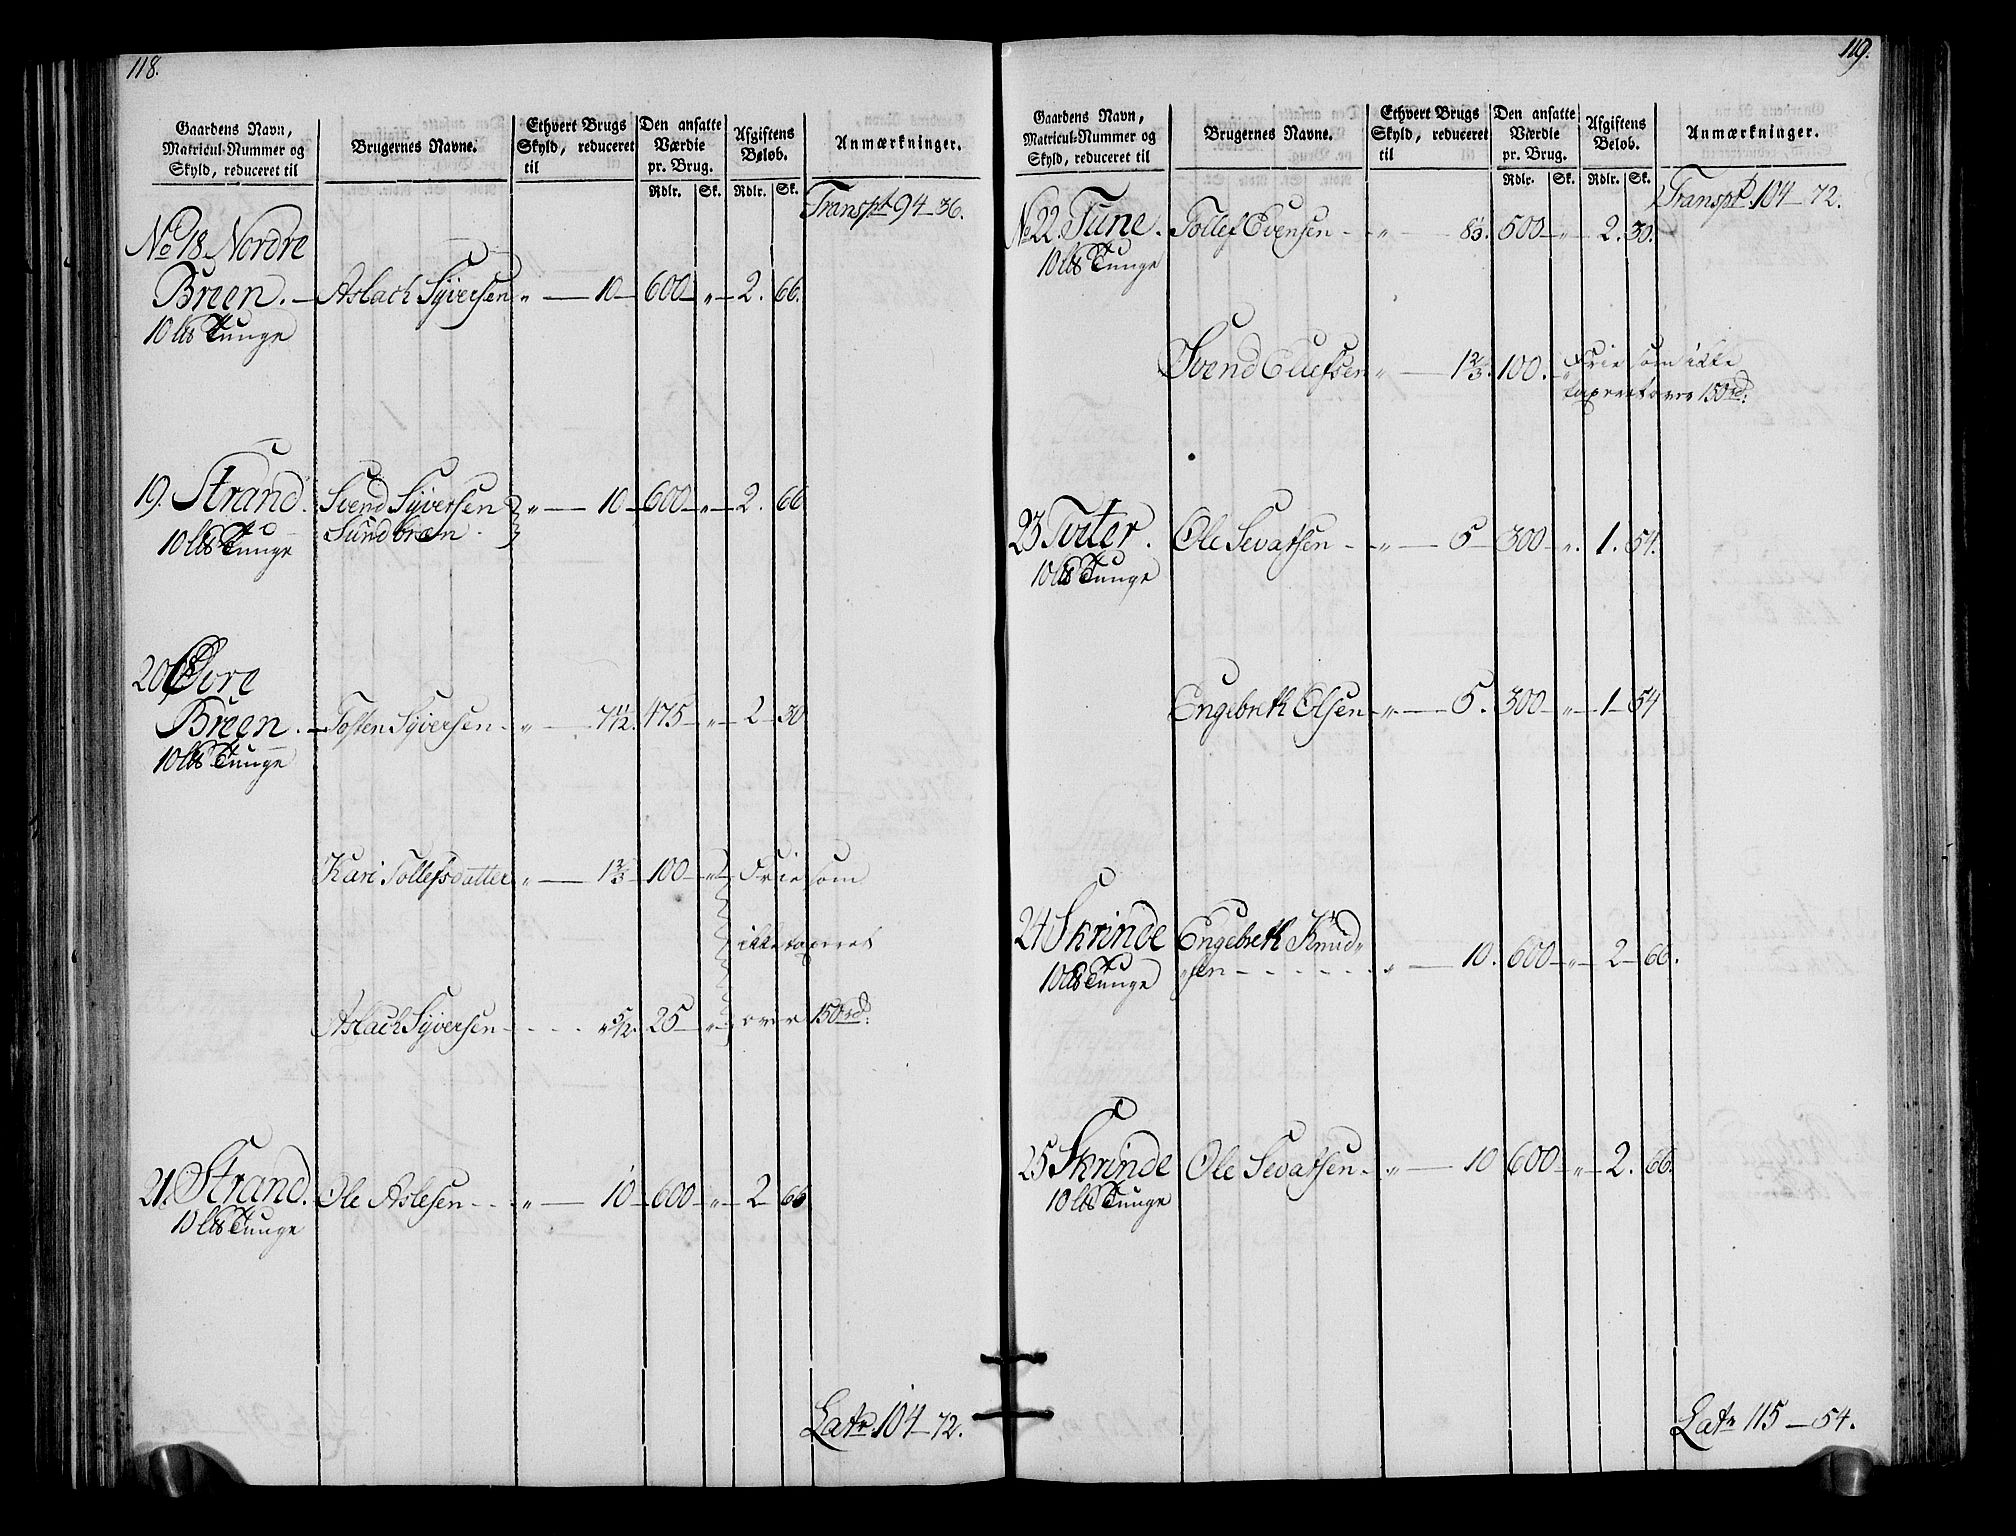 118.
Gaardens Navn, Matricul-Nummer og Skyld, reduceret til | Brugernes Navne. | Ethvert Brugs Skyld, reduceret til | Den ansatte Værdie pr. Brug. Rdlr. Sk. | Afgiftens Beløb. Rdlr. Sk. | Anmærkninger.
Transpt 94 — 36.
No 18. Nordre
Breen. — Aslach Syversen „ — 10 — 600 — „ — 2. 66.
10 lb Tunge
19. Strand. Svend Syversen „ — 10 — 600 — „ — 2. 66
10 lb Tunge Sundbræn.
20. Øvre
Breen. — Tosten Syversen - „ — 7 1/2. 475 — „ — 2 — 30
10 lb Tunge
Kari Tollefsdatter „ — 1 2/3 — 100 — „ — Frie som
ikke taxeret
Aslach Syversen - - - - „ 5/12. 25 — „ — over 150 rd:
21. Strand. Ole Aslesen - - „ — 10 — 600 — „ — 2 — 66
10 lb Tunge
Latr. 104 — 72.
119.
Gaardens Navn, Matricul-Nummer og Skyld, reduceret til | Brugernes Navne. | Ethvert Brugs Skyld, reduceret til | Den ansatte Værdie pr. Brug. Rdlr. Sk. | Afgiftens Beløb. Rdlr. Sk. | Anmærkninger.
Transpt. 104 — 72.
No 22. Tune. Tollef Evensen - „ — 8 1/3. 500 — „ — 2. 30.
10 lb Tunge
Svend Ellefsen „ — 1 2/3. 100. — Frie som ikke
taxeret over 150 rd:
23 Tviter. Ole Sevatsen - - „ — 5 — 300 — „. 1. 54.
10 lb Tunge
Engebreth Olsen — „ — 5. 300 — „ — 1 — 54
24 Skrinde Engebreth Knud-
10 lb Tunge „sen - - - - - - „ — 10. 600 — „ — 2 — 66.
25 Skrinde Ole Sevatsen - „ — 10 600 — „ — 2. 66.
10 lb Tunge
Latr 115 — 54.